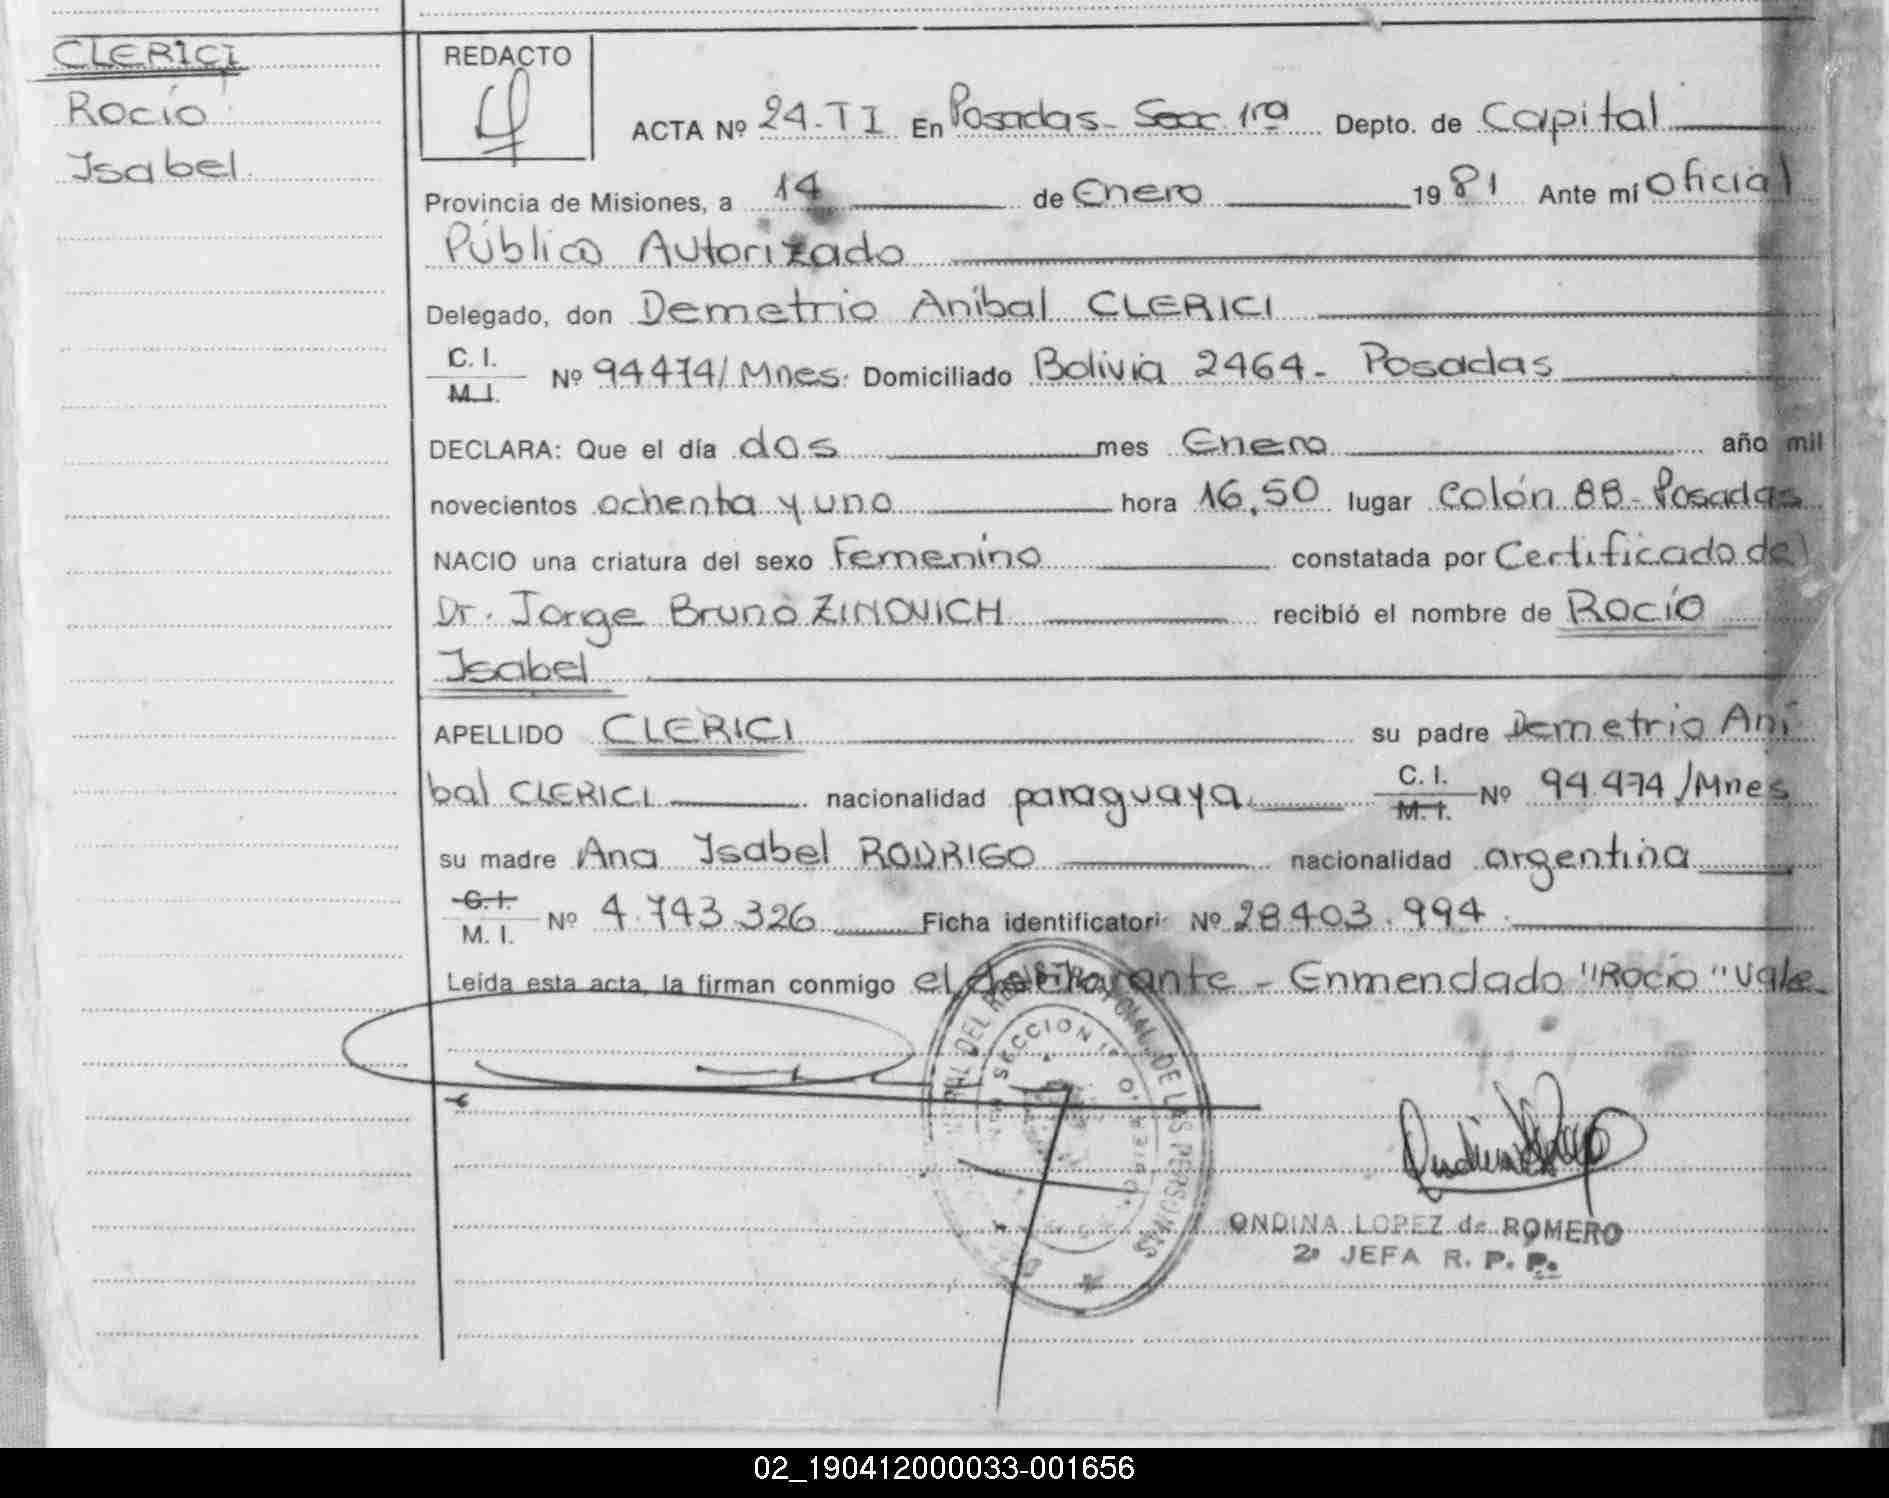 CLERICI
Rocío
Isabel
REDACTO
ACTA Nº 24-TI En Posadas - Secc 1ra Depto. de Capital
Provincia de Misiones, a 14 de Enero 1981 Ante mí Oficial
Público Autorizado
Delegado, don Demetrio Anibal CLERICI
C. I.
M. I. Nº 94474/Mnes. Domiciliado Bolivia 2464 - Posadas
DECLARA: Que el día dos mes Enero año mil
novecientos ochenta y uno hora 16,50 lugar Colón 88 - Posadas
NACIO una criatura del sexo Femenino constatada por Certificado del
Dr. Jorge Bruno ZINOVICH recibió el nombre de Rocío
Isabel
APELLIDO CLERICI su padre Demetrio Aní
bal CLERICI nacionalidad paraguaya C. I. M. I. Nº 94.474/Mnes
su madre Ana Isabel RODRIGO nacionalidad argentina
C. I.
M. I. Nº 4.743.326 Ficha identificatori Nº 28.403.994.
Leída esta acta, la firman conmigo el declarante - Enmendado "Rocío" Vale
SECCION 1ª
DE LAS PERSONAS
ONDINA LOPEZ de ROMERO
2ª JEFA R. P. P.
02_190412000033-001656